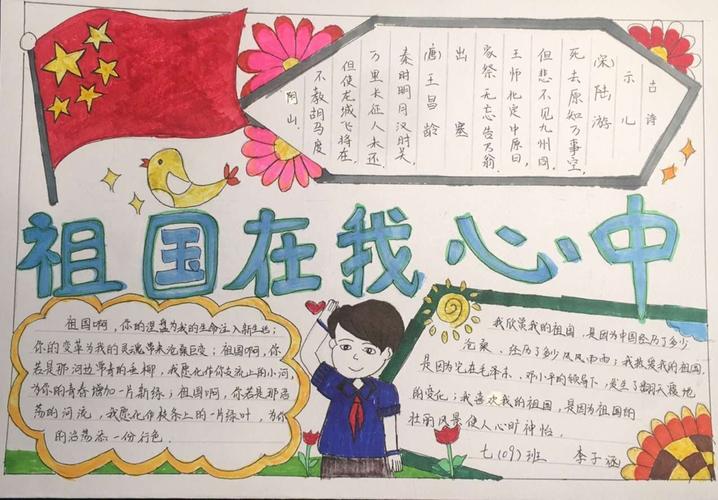 古诗
示儿
(宋)陆游
死去原知万事空,
但悲不见九州同,
王师北定中原日,
家祭无忘告乃翁.
出塞
(唐)王昌龄
秦时明月汉时关
万里长征人未还
但使龙城飞将在,
不教胡马度
阴山.
祖国在我心中
祖国啊,你的为我的生命注入新生;
你的变革为我的灵魂带来沧桑巨变;祖国啊,你
若是那河边青的垂柳,我愿化作你上的小河
为你的青春增加一片新绿;祖国啊,你若是那浩
荡的河流,我愿化作枝条上的一片绿叶,为你
的浩荡添一份行色.
我欣赏我的祖国,是因为中国经历了多少
沧桑、经历了多少风风雨雨;我热爱我的祖国,
是因为它在毛泽东、邓小平的领导下,发生了翻天覆地
的变化;我喜欢我的祖国,是因为祖国的
壮丽风景使人心旷神怡.
七(09)班 李子涵